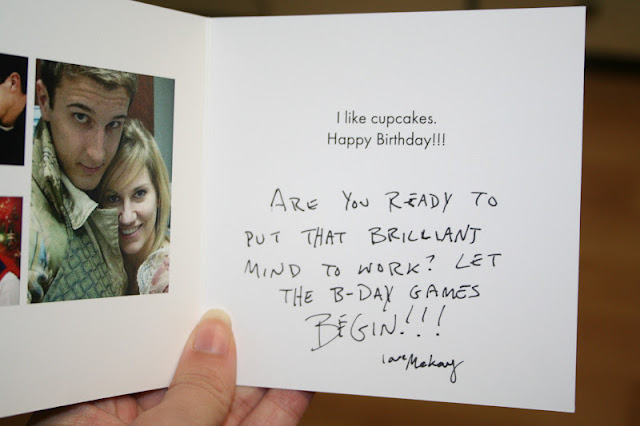 I like cupcakes.
Happy Birthday!!!
ARE YOU READY TO
PUT THAT BRILLIANT
MIND TO WORK? LET
THE B-DAY GAMES
BEGIN!!!
Love McKay